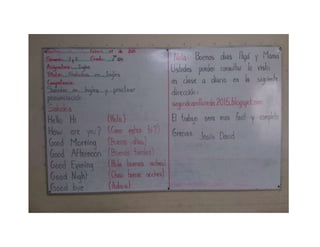 Asignatura: Ingles
Titulo: Saludos en Ingles
Competencia:
Saludar en Ingles y practicar
pronunciación
Saludos
Hello Hi (Hola)
How are you? (Como estas tu?)
Good Morning (Buenos dias)
Good Afternoon (Buenas tardes)
Good Evening (Hola buenas noches)
Good Night (Chao buenas noches)
Good bye (Adios)
Nota: Buenos dias Papá y Mamá
Ustedes pueden consultar lo visto
en clase a diario en la siguiente
dirección:
El trabajo sera mas facil y completo
Gracias. Jesús David